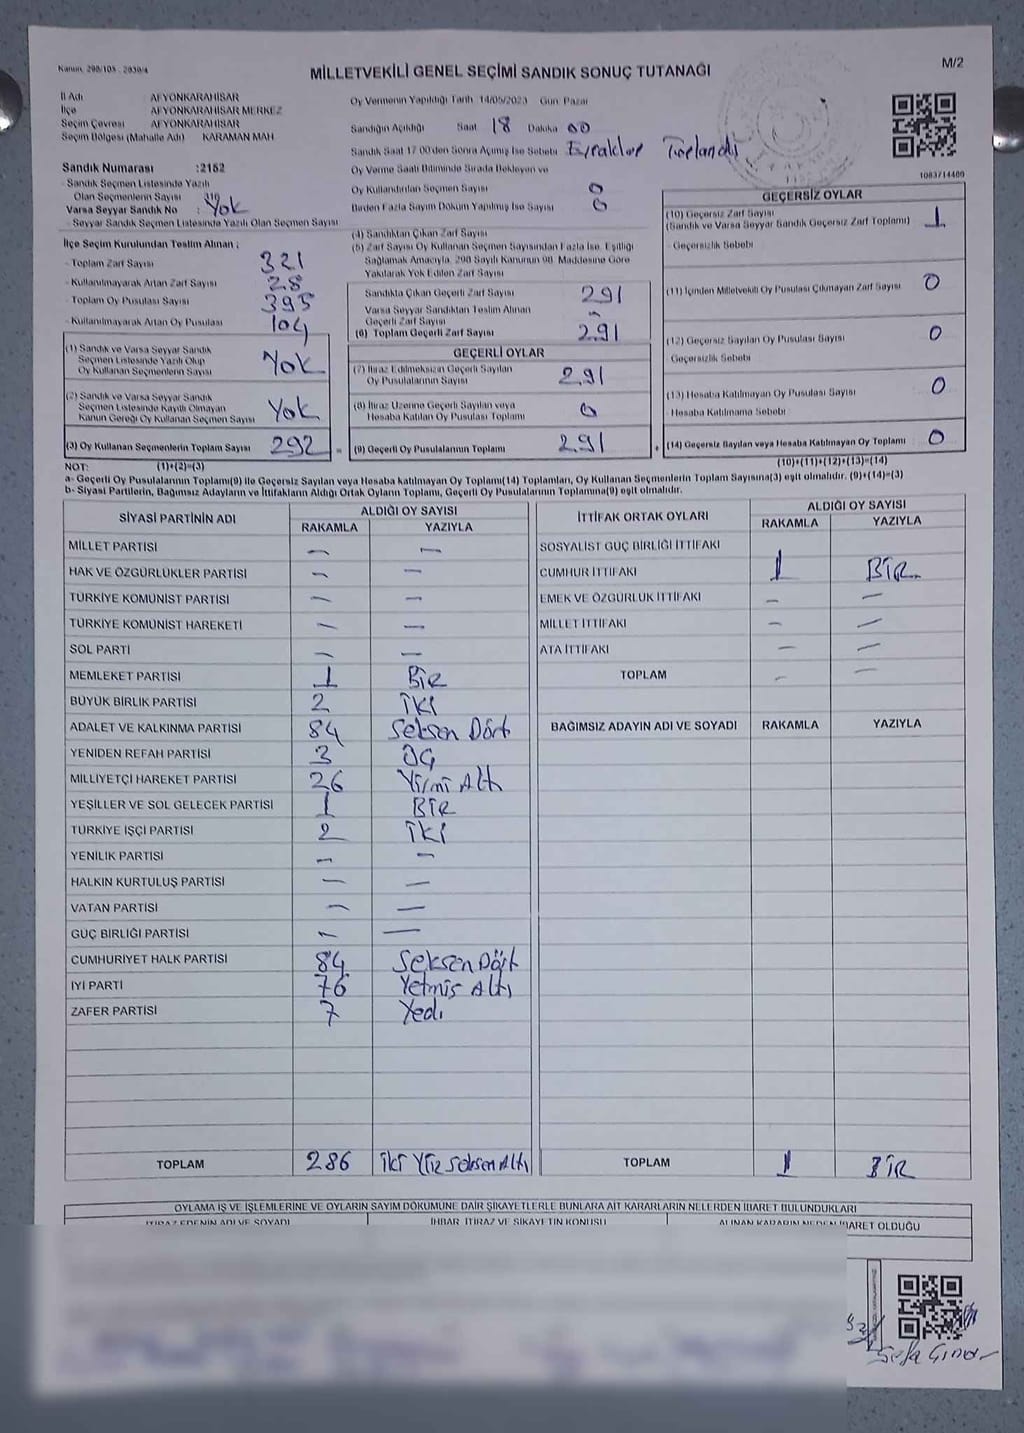 Kanun: 298/105 - 2839/4
M/2
MİLLETVEKİLİ GENEL SEÇİMİ SANDIK SONUÇ TUTANAĞI
İl Adı AFYONKARAHİSAR
İlçe AFYONKARAHİSAR MERKEZ
Seçim Çevresi AFYONKARAHİSAR
Seçim Bölgesi (Mahalle Adı) KARAMAN MAH
Sandık Numarası :2152
- Sandık Seçmen Listesinde Yazılı
Olan Seçmenlerin Sayısı 310
Varsa Seyyar Sandık No : Yok
- Seyyar Sandık Seçmen Listesinde Yazılı Olan Seçmen Sayısı
İlçe Seçim Kurulundan Teslim Alınan :
- Toplam Zarf Sayısı 321
- Kullanılmayarak Artan Zarf Sayısı 28
- Toplam Oy Pusulası Sayısı 395
- Kullanılmayarak Artan Oy Pusulası 104
(1) Sandık ve Varsa Seyyar Sandık
Seçmen Listesinde Yazılı Olup
Oy Kullanan Seçmenlerin Sayısı Yok
(2) Sandık ve Varsa Seyyar Sandık
Seçmen Listesinde Kayıtlı Olmayan
Kanun Gereği Oy Kullanan Seçmen Sayısı Yok
(3) Oy Kullanan Seçmenlerin Toplam Sayısı 292
Oy Vermenin Yapıldığı Tarih 14/05/2023 Gün Pazar
Sandığın Açıldığı Saat 18 Dakika 00
Sandık Saat 17:00'den Sonra Açılmış İse Sebebi Evraklar Toplandı
Oy Verme Saati Bitiminde Sırada Bekleyen ve
Oy Kullandırılan Seçmen Sayısı 0
Birden Fazla Sayım Döküm Yapılmış İse Sayısı 0
(4) Sandıktan Çıkan Zarf Sayısı
(5) Zarf Sayısı Oy Kullanan Seçmen Sayısından Fazla İse, Eşitliği
Sağlamak Amacıyla, 298 Sayılı Kanunun 98. Maddesine Göre
Yakılarak Yok Edilen Zarf Sayısı
Sandıkta Çıkan Geçerli Zarf Sayısı 291
Varsa Seyyar Sandıktan Teslim Alınan
Geçerli Zarf Sayısı -
(6) Toplam Geçerli Zarf Sayısı 291
GEÇERLİ OYLAR
(7) İtiraz Edilmeksizin Geçerli Sayılan
Oy Pusulalarının Sayısı 291
(8) İtiraz Üzerine Geçerli Sayılan veya
Hesaba Katılan Oy Pusulası Toplamı 0
= (9) Geçerli Oy Pusulalarının Toplamı 291
1083714400
GEÇERSİZ OYLAR
(10) Geçersiz Zarf Sayısı
(Sandık ve Varsa Seyyar Sandık Geçersiz Zarf Toplamı) 1
- Geçersizlik Sebebi
(11) İçinden Milletvekili Oy Pusulası Çıkmayan Zarf Sayısı 0
(12) Geçersiz Sayılan Oy Pusulası Sayısı 0
Geçersizlik Sebebi
(13) Hesaba Katılmayan Oy Pusulası Sayısı 0
- Hesaba Katılmama Sebebi
+ (14) Geçersiz Sayılan veya Hesaba Katılmayan Oy Toplamı 0
NOT: (1)+(2)=(3) (10)+(11)+(12)+(13)=(14)
a- Geçerli Oy Pusulalarının Toplamı(9) ile Geçersiz Sayılan veya Hesaba katılmayan Oy Toplamı(14) Toplamları, Oy Kullanan Seçmenlerin Toplam Sayısına(3) eşit olmalıdır. (9)+(14)=(3)
b- Siyasi Partilerin, Bağımsız Adayların ve İttifakların Aldığı Ortak Oyların Toplamı, Geçerli Oy Pusulalarının Toplamına(9) eşit olmalıdır.
SİYASİ PARTİNİN ADI ALDIĞI OY SAYISI
RAKAMLA YAZIYLA
MİLLET PARTİSİ - -
HAK VE ÖZGÜRLÜKLER PARTİSİ - -
TÜRKİYE KOMÜNİST PARTİSİ - -
TÜRKİYE KOMÜNİST HAREKETİ - -
SOL PARTİ - -
MEMLEKET PARTİSİ 1 BİR
BÜYÜK BİRLİK PARTİSİ 2 İKİ
ADALET VE KALKINMA PARTİSİ 84 Seksen Dört
YENİDEN REFAH PARTİSİ 3 ÜÇ
MİLLİYETÇİ HAREKET PARTİSİ 26 Yirmi Altı
YEŞİLLER VE SOL GELECEK PARTİSİ 1 BİR
TÜRKİYE İŞÇİ PARTİSİ 2 İKİ
YENİLİK PARTİSİ - -
HALKIN KURTULUŞ PARTİSİ - -
VATAN PARTİSİ - -
GÜÇ BİRLİĞİ PARTİSİ - -
CUMHURİYET HALK PARTİSİ 84 Seksen Dört
İYİ PARTİ 76 Yetmiş Altı
ZAFER PARTİSİ 7 Yedi
TOPLAM 286 İki Yüz Seksen Altı
İTTİFAK ORTAK OYLARI ALDIĞI OY SAYISI
RAKAMLA YAZIYLA
SOSYALİST GÜÇ BİRLİĞİ İTTİFAKI
CUMHUR İTTİFAKI 1 BİR
EMEK VE ÖZGÜRLÜK İTTİFAKI - -
MİLLET İTTİFAKI - -
ATA İTTİFAKI - -
TOPLAM - -
BAĞIMSIZ ADAYIN ADI VE SOYADI RAKAMLA YAZIYLA
TOPLAM 1 BİR
OYLAMA İŞ VE İŞLEMLERİNE VE OYLARIN SAYIM DÖKÜMÜNE DAİR ŞİKAYETLERLE BUNLARA AİT KARARLARIN NELERDEN İBARET BULUNDUKLARI
İTİRAZ EDENİN ADI VE SOYADI İHBAR, İTİRAZ VE ŞİKAYETİN KONUSU ALINAN KARARIN NEDEN İBARET OLDUĞU